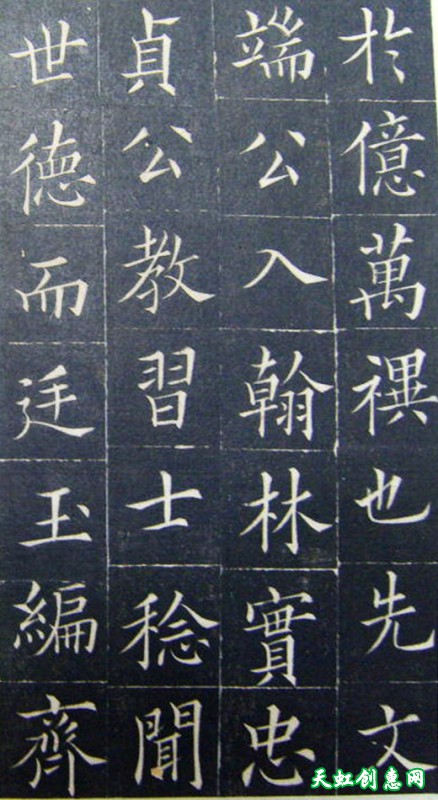 於億萬禩也先文
端公入翰林實忠
貞公教習士稔聞
世德而廷玉編齊
天虹创惠网